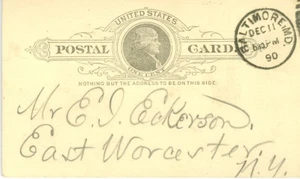 UNITED STATES
POSTAL CARD
ONE CENT
NOTHING BUT THE ADDRESS TO BE ON THIS SIDE.
BALTIMORE, MD.
DEC 11
6 PM
90
Mr E. I. Eckerson,
East Worcester,
N.Y.